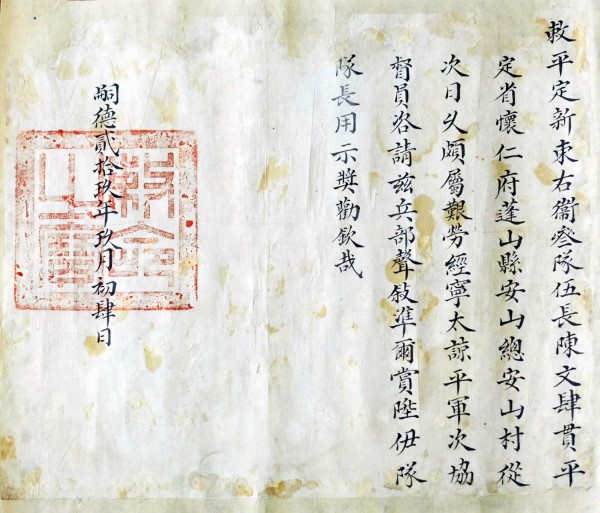 敕平定新東右衞叄隊伍長陳文肆貫平
定省懷仁府蓬山縣安山總安山村從
次日久頗屬艱劳經寧太諒平軍次協
督員咨請兹兵部聲敍準爾賞陞伊隊
隊長用示獎勸欽哉
嗣德貳拾玖年玖月初肆日
敕命之寶